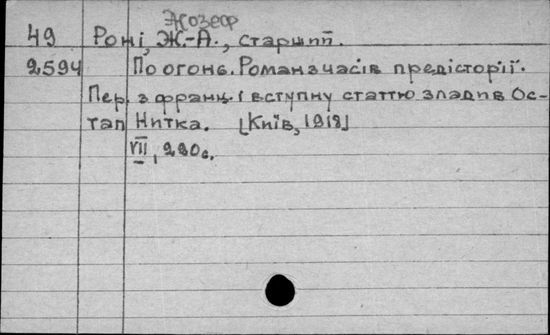 Жозеф
49 Роні, Ж.-А., старший.
2594 По огонь. Роман з часів предісторії.
Пер. з франц. і вступну статтю зладив Ос-
тап Нитка. [Київ, 1918]
VII, 220 с.